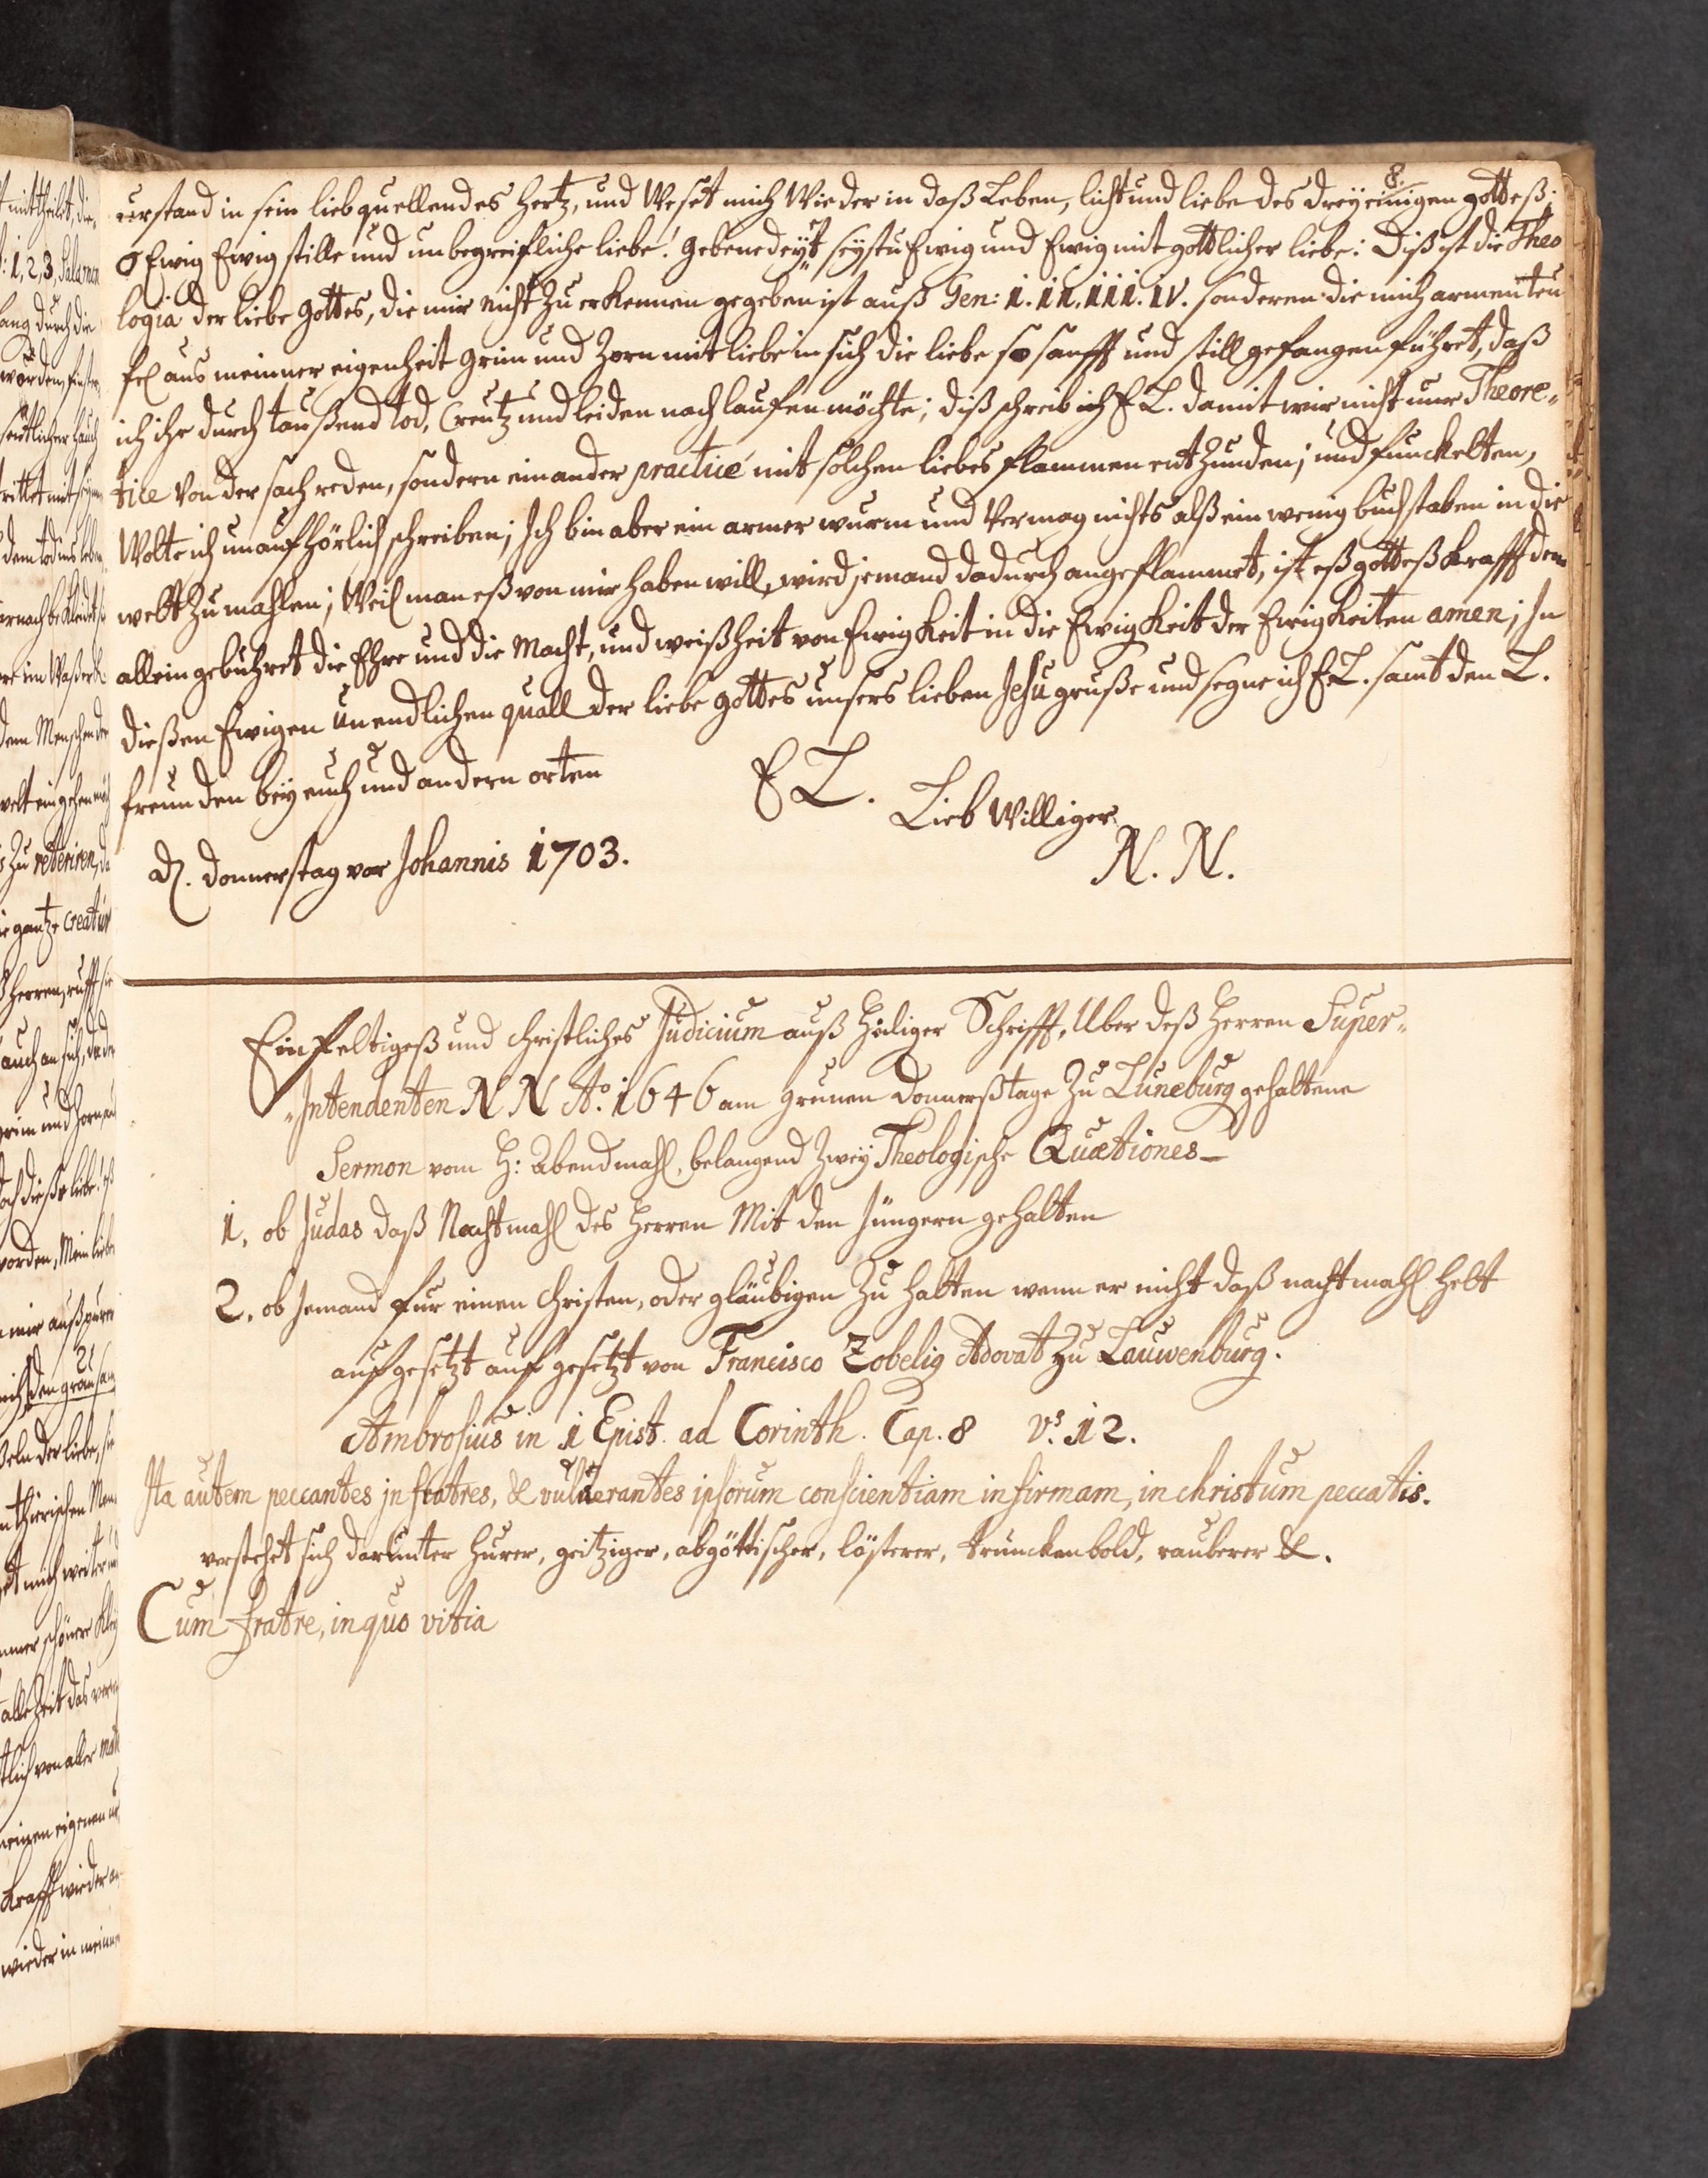 8.
urstand in sein liebquellendes hertz, und Weset mich Wieder in daß Leben, licht und liebe des dreyeinigen gotteß;
O Ewig Ewig stille und unbegreifliche liebe! gebenedeyt seystu Ewig und Ewig mit gottlicher liebe: Diß ist die Theo
logia der liebe gottes, die mir nicht zu erkennen gegeben ist auß Gen: I. II. III. IV. sonderen die mich armen teu
fel aus meinner eigenheit grim und Zorn mit liebe in sich die liebe so sanfft und still gefangen führet, daß
ich ihr durch taußend tod, Creutz und leiden nachlaufen möchte; diß schreib ich E L. damit wir nicht nur Theore-
tice von der sach reden, sondern einander practicé mit solchen liebes flammen entzunden; und funckelten,
Wolte ich unaufhörlich schreiben; Ich bin aber ein armer wurm und Vermag nichts alß ein wenig buchstaben in die
welt zu mahlen; Weil man eß von mir haben will, wird jemand dadurch angeflammet, ist eß gotteß Krafft dem
allein gebühret die Ehre und die Macht, und weißheit von Ewigkeit in die Ewigkeit der Ewigkeiten amen; In
dießen Ewigen unendlichen quall der liebe gottes unsers lieben Jesu gruße und segne ich E L. samt den L.
freunden bey euch und andern orten
E L.
Lieb Williger
N. N.
D. donnerstag vor Johannis 1703.
Einfeltigeß und christliches Judicium auß Heiliger Schrifft, Uber deß Herren Super-
-Intendenten N N Ao. 1646 am grunen donnerßtage zu Luneburg gehaltene
Sermon vom H: Abendmahl, belangend zwey Theologische Quætiones
1. ob Judas daß Nachtmahl des Herren Mit den Jüngern gehalten
2. ob Jemand fur einen christen, oder gläubigen zu halten wenn er nicht daß nachtmahl helt
aufgesetzt aufgesetzt von Francisco Zobelig Adovat zu Lauwenburg.
Ambrosius in 1 Epist. ad Corinth. Cap. 8 Vs. 12.
Ita autem peccantes jn fratres, & vulnerantes ipsorum conscientiam infirmam, in christum peccatis.
verstehet sich darunter hurer, geitziger, abgöttischer, lästerer, trunckenbold, rauberer &.
Cum fratre, in quo vitia